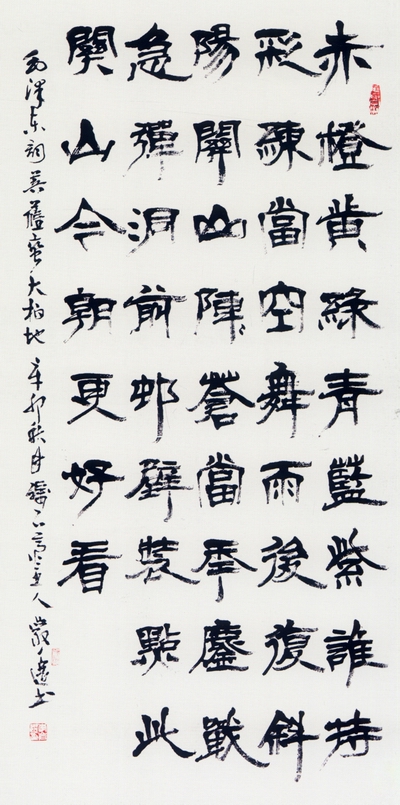 赤橙黄綠青藍紫誰持
彩練當空舞雨後復斜
陽關山陣〻蒼當秊鏖戰
急彈洞前邨壁裝點此
關山今朝更好看
毛澤東詞菩薩蠻大柏地辛卯秋月